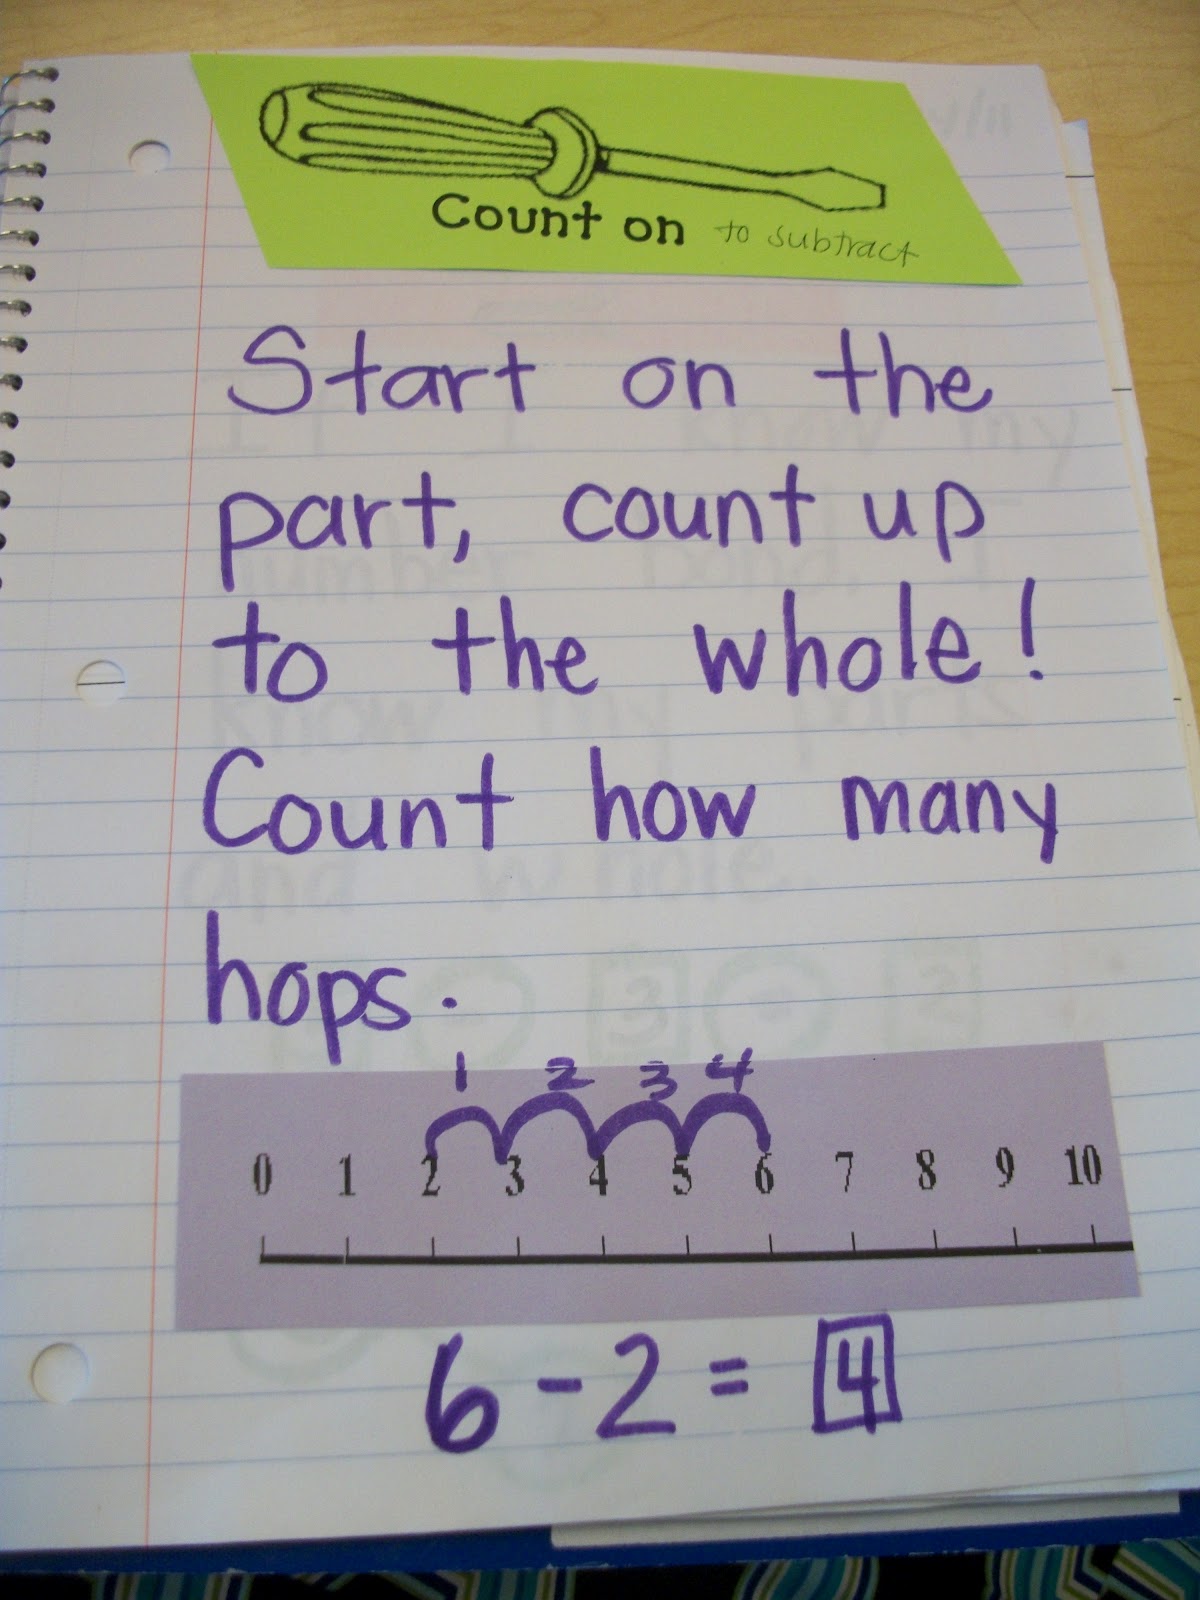 Count on to subtract
Start on the
part, count up
to the whole!
Count how many
hops.
1 2 3 4
0 1 2 3 4 5 6 7 8 9 10
6 - 2 = 4